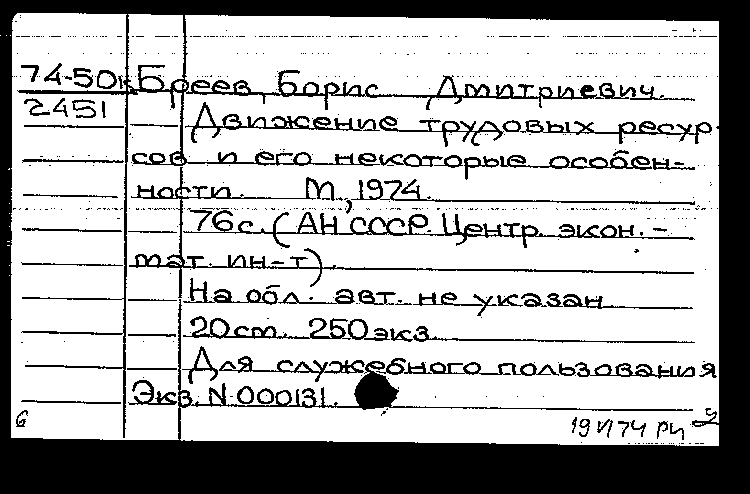 74-50к Бреев, Борис Дмитриевич.
2451
Движение трудовых ресур-
сов и его некоторые особен-
ности. М, 1974.
76с. (АН СССР. Центр. экон. -
мат. ин-т).
На обл. авт. не указан
20см. 250экз.
Для служебного пользования
Экз. N 000131.
6
19 VI 74